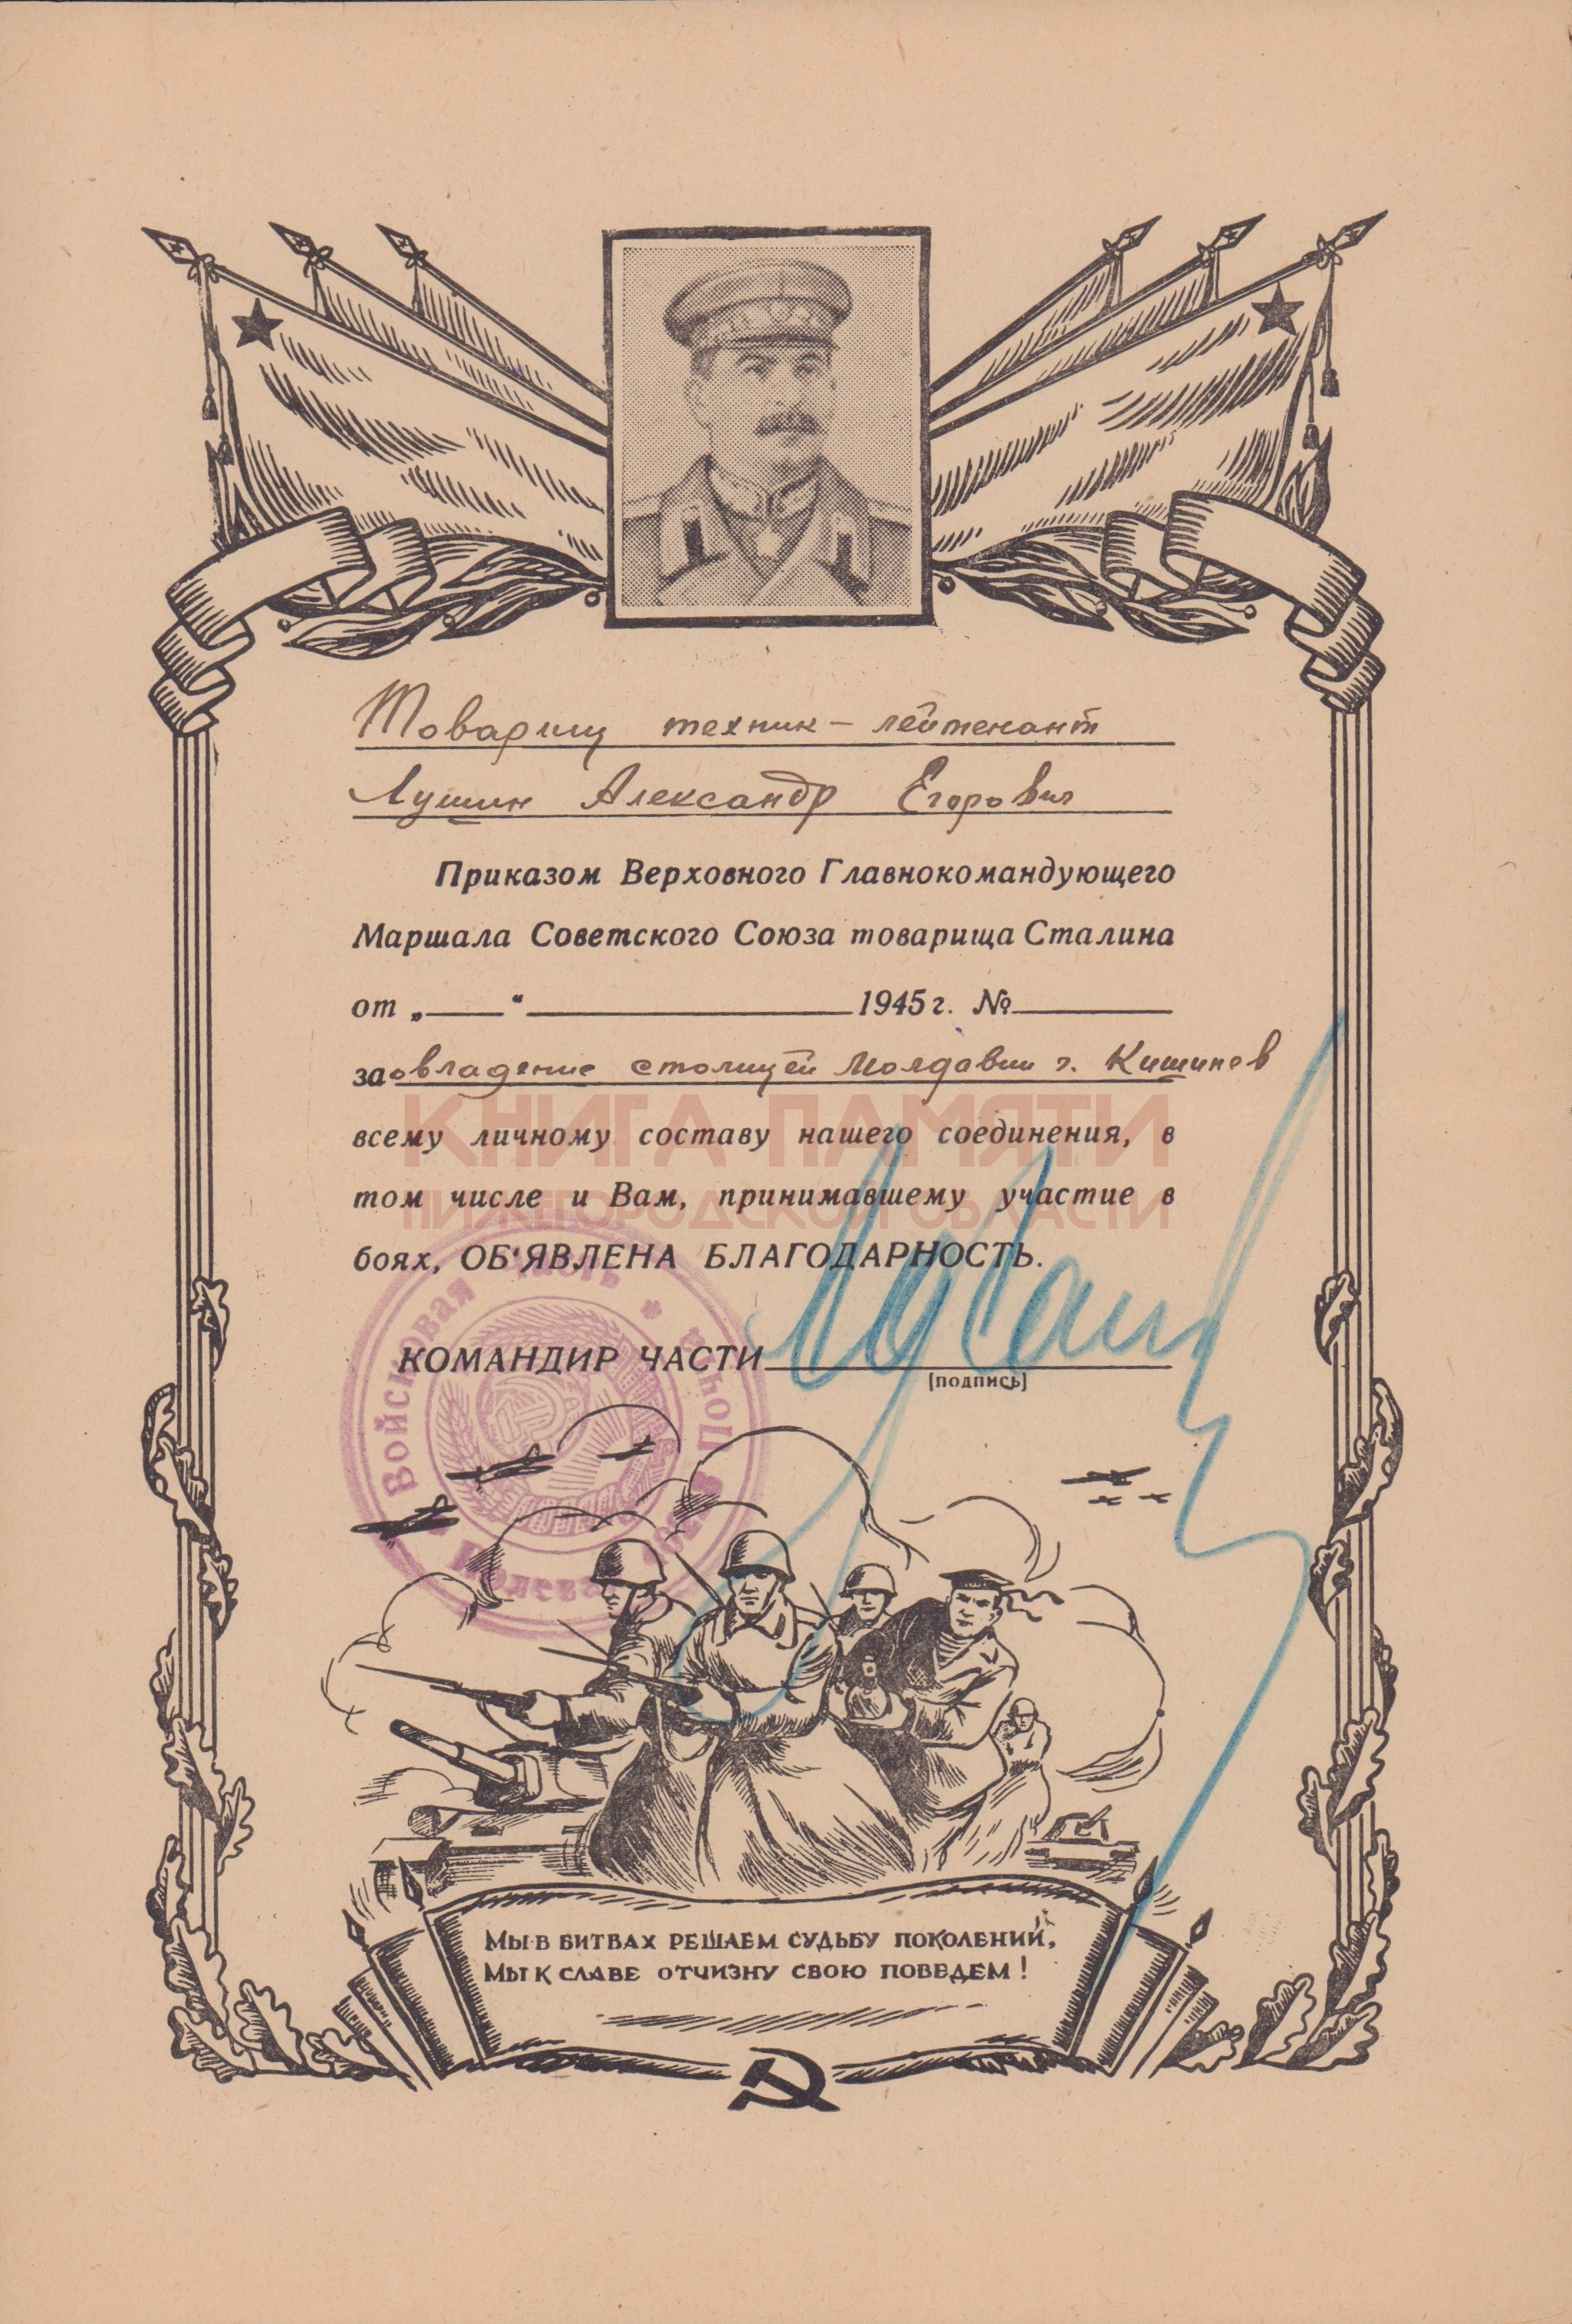 Товарищ техник-лейтенант
Лушин Александр Егорович
Приказом Верховного Главнокомандующего
Маршала Советского Союза товарища Сталина
от „ “ 1945 г. №
за овладение столицей Молдавии г. Кишинев
КНИГА ПАМЯТИ
всему личному составу нашего соединения, в
том числе и Вам, принимавшему участие в
НИЖЕГОРОДСКОЙ ОБЛАСТИ
боях, ОБ'ЯВЛЕНА БЛАГОДАРНОСТЬ.
КОМАНДИР ЧАСТИ
(подпись)
Войсковая часть * Полевая почта
МЫ В БИТВАХ РЕШАЕМ СУДЬБУ ПОКОЛЕНИЙ,
МЫ К СЛАВЕ ОТЧИЗНУ СВОЮ ПОВЕДЕМ!